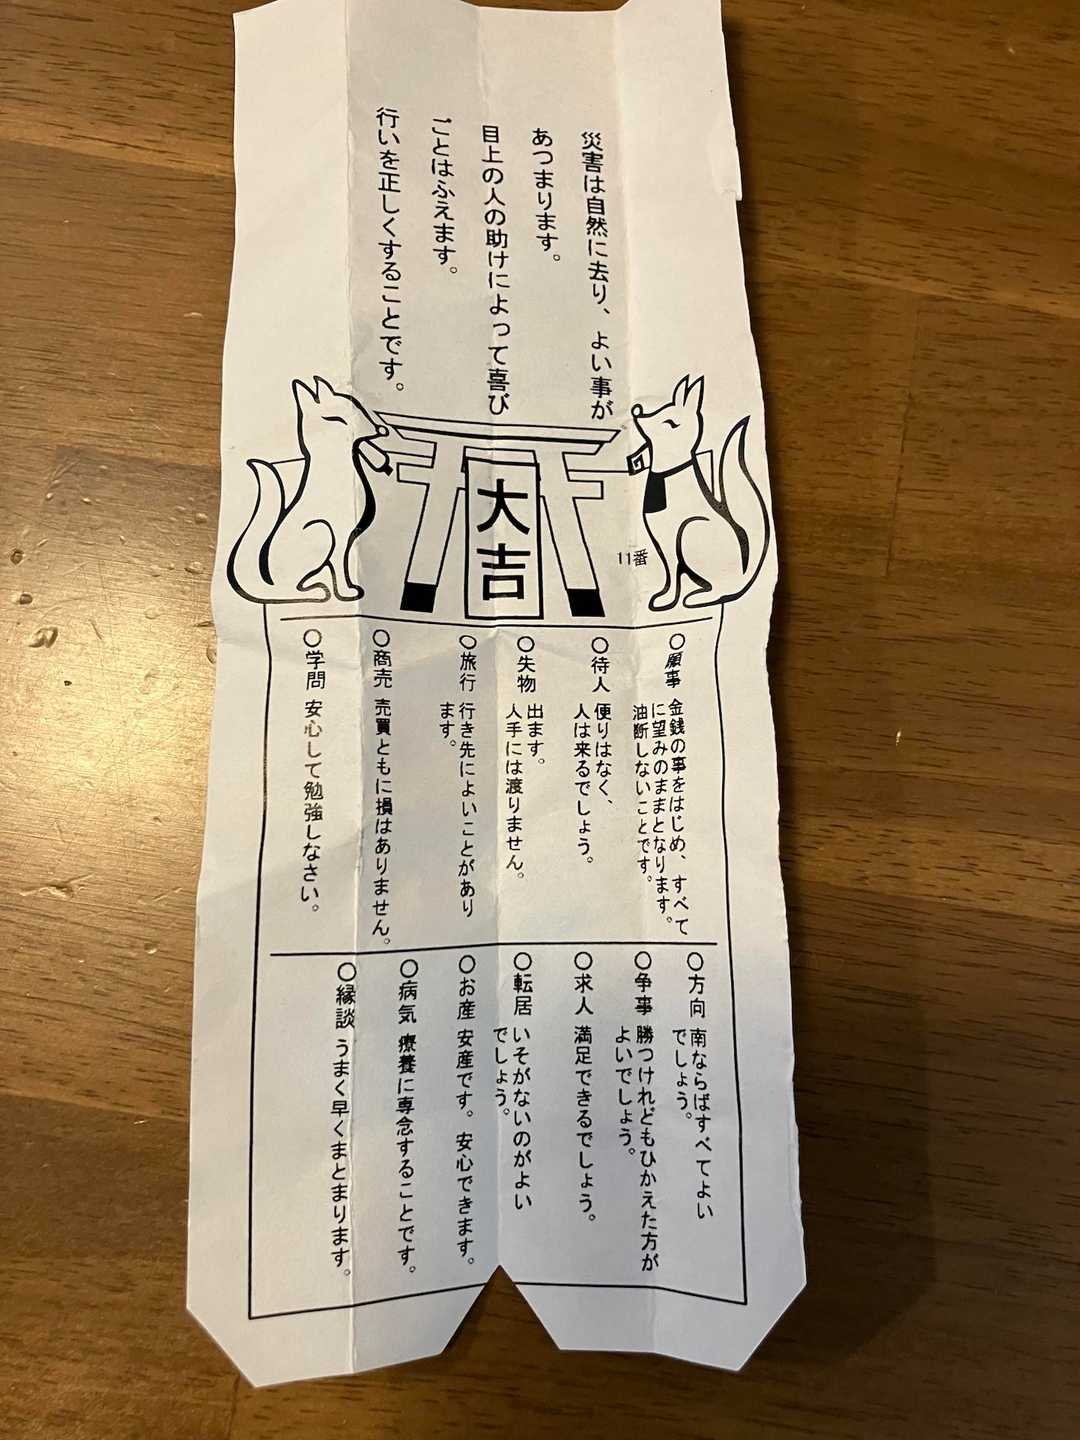 災害は自然に去り、よい事が
あつまります。
目上の人の助けによって喜び
ごとはふえます。
行いを正しくすることです。
大吉
11番
○願事 金銭の事をはじめ、すべて
に望みのままとなります。
油断しないことです。
○待人 便りはなく、
人は来るでしょう。
○失物 出ます。
人手には渡りません。
○旅行 行き先によいことがあり
ます。
○商売 売買ともに損はありません。
○学問 安心して勉強しなさい。
○方向 南ならばすべてよい
でしょう。
○争事 勝つけれどもひかえた方が
よいでしょう。
○求人 満足できるでしょう。
○転居 いそがないのがよい
でしょう。
○お産 安産です。安心できます。
○病気 療養に専念することです。
○縁談 うまく早くまとまります。